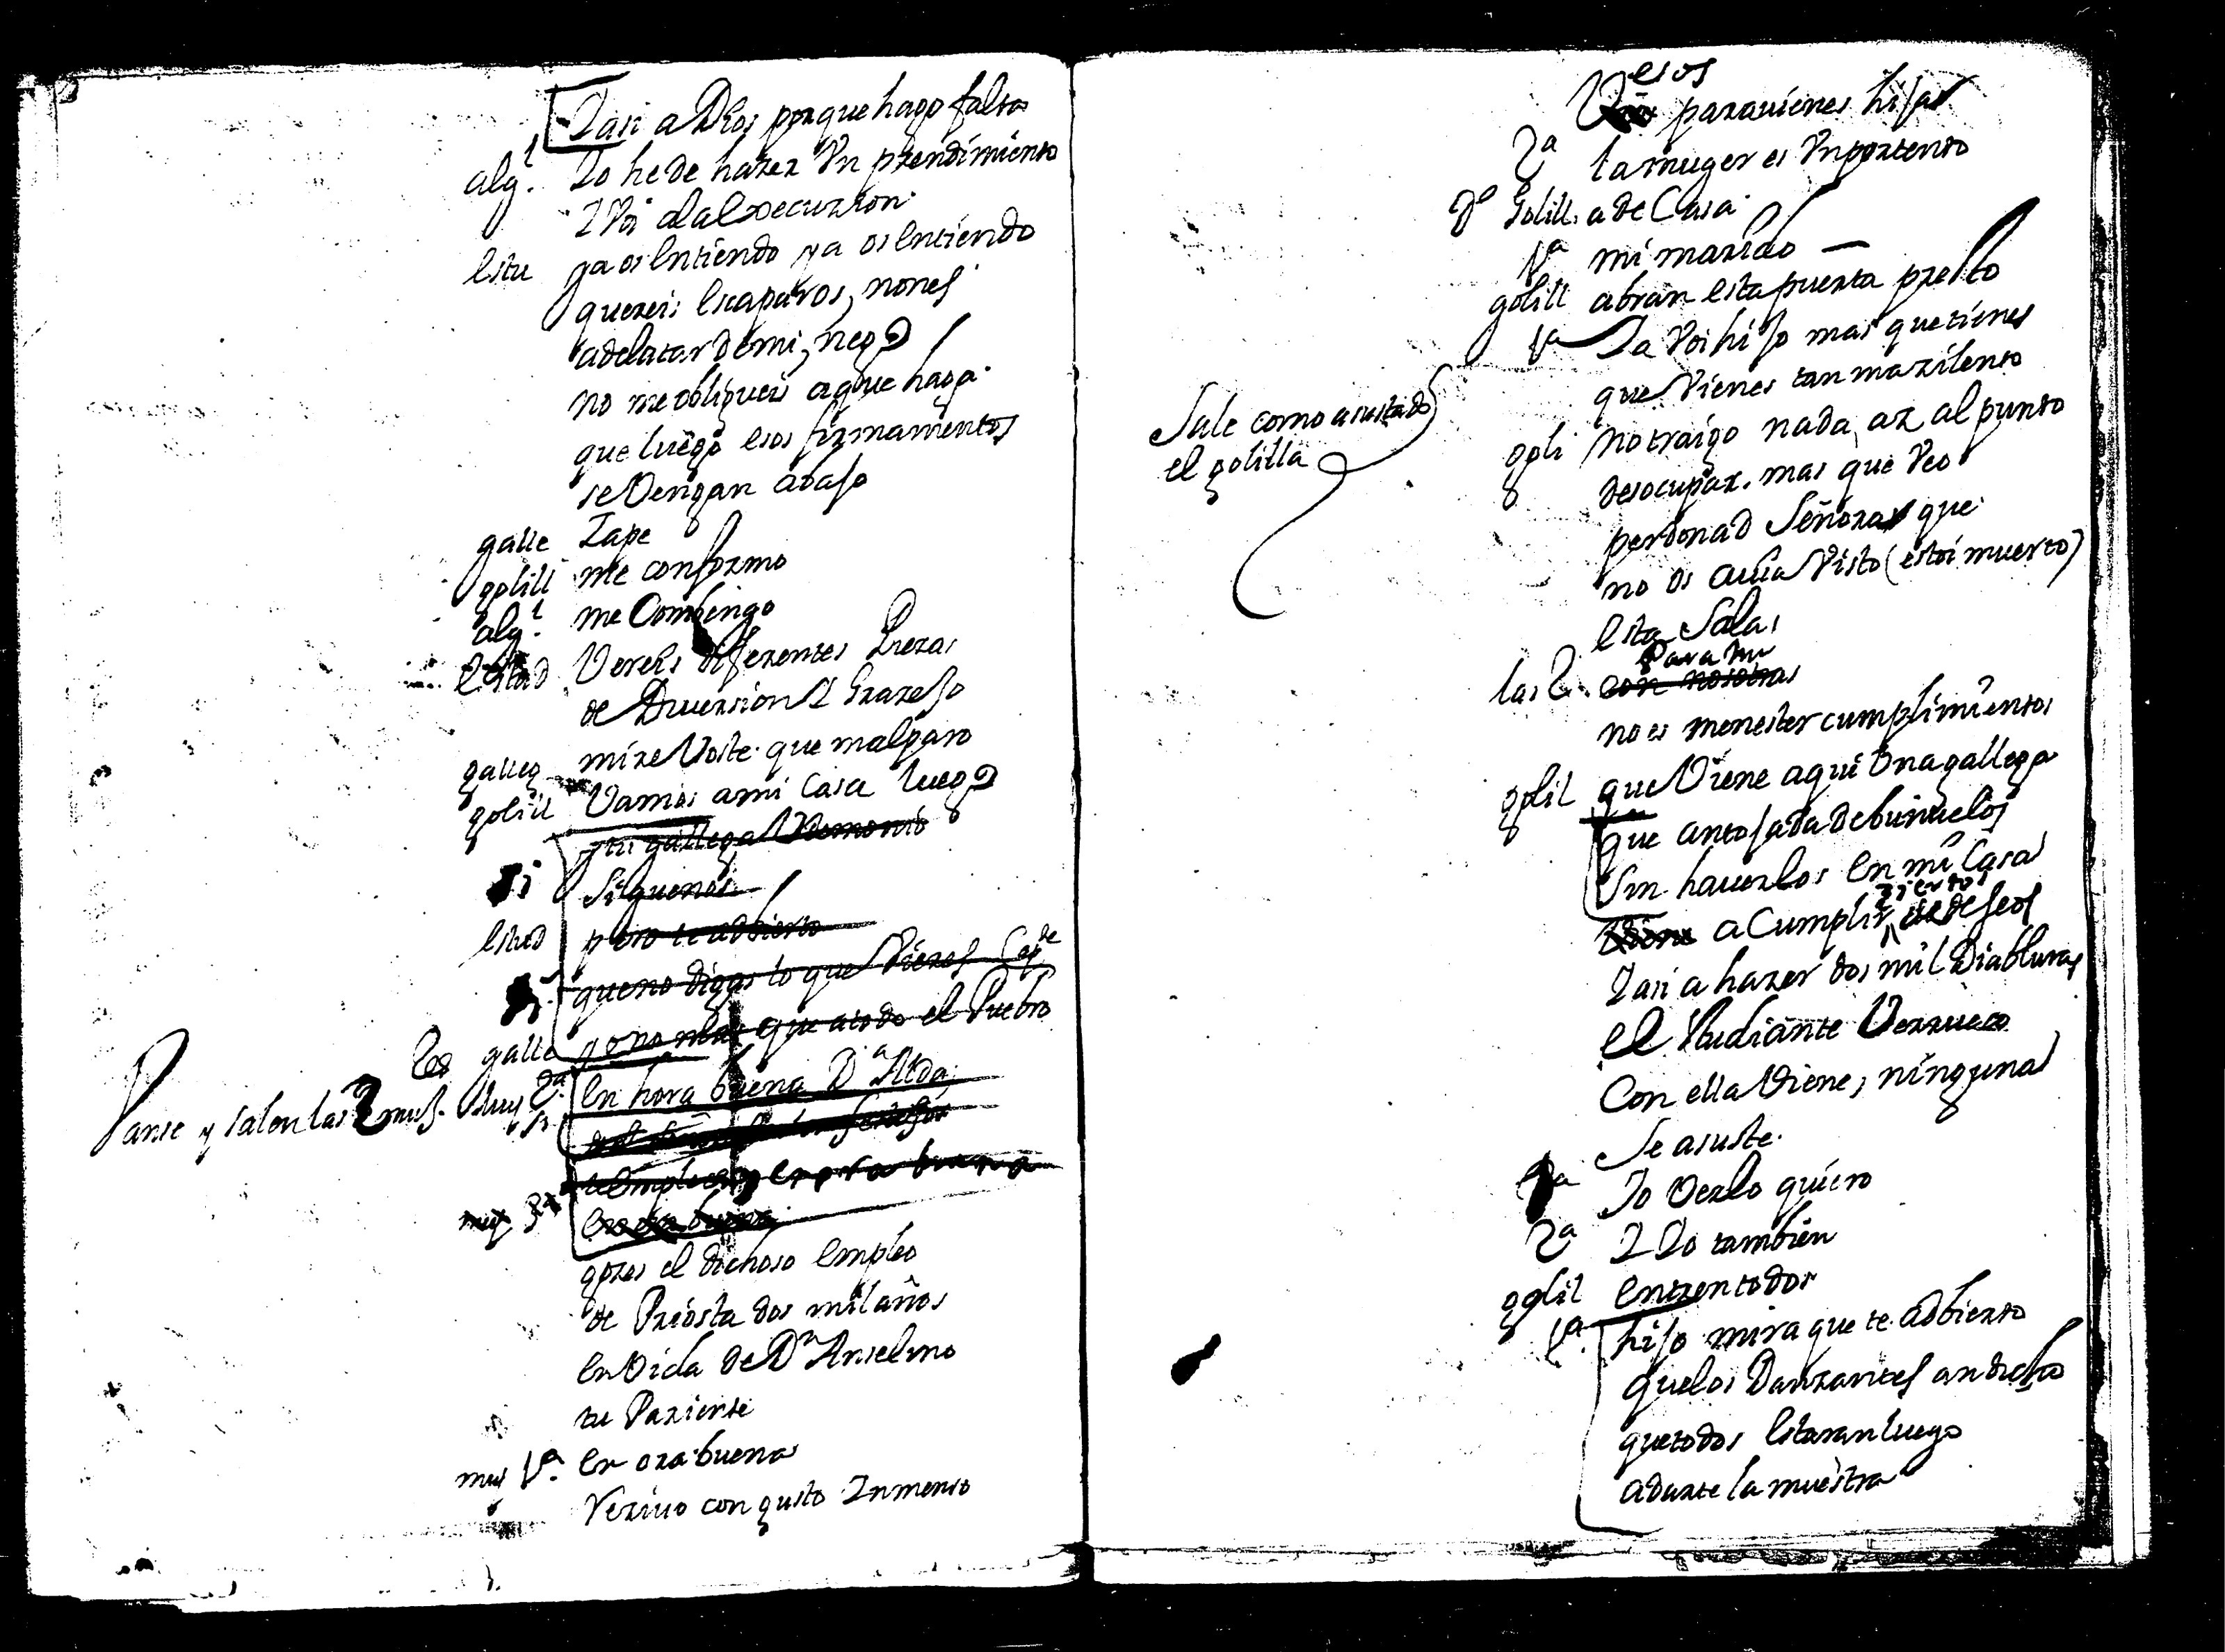 Iasi a Dios porque hago falta
alg.l Io he de hazer Vn prendimiento
I Voi a la execuzion
estu ya os entiendo ya os entiendo
quereis escaparos, nones
adelatar de mi, nego
no me obligueis a que haga
que luego esos firmamentos
se Vengan abajo
galle Zape
golill me conformo
alg.l me Combengo
estud Vereis diferentes Piezas
de Diversion I Grazejo
galleg mire Voste que mal paro
golill Vamos a mi Casa luego
tu gallega Demonio
Siguenos
estud pero te adbierto
que no digas lo que Vieres
galle yo no mas que a todo el Pueblo
Vanse y salen las 3 muj.
En hora buena D.a Alda
en ora buena
muj 3a
gozes el dichoso empleo
de Priosta dos mil años
en Vida de Dn Anselmo
tu Pariente
muj 1.a en ora buena
rezivo con gusto Inmenso
esos
paravienes hijas
2a la muger es Vn portento
Do Golill. a de Casa
1a mi marido
golill abran esta puerta presto
1a Ia Voi hijo mas que tienes
que Vienes tan mazilento
Sale como asustado
el golilla
goli no traigo nada, az al punto
desocupar. mas que Veo
perdonad Señoras que
no os avia Visto (estoi muerto)
esta Sala
para mi
las 2. con nosotras
no es menester cumplimientos
golil que Viene aqui Vna gallega
que antojada de buñuelos
Sin haverlos en mi Casa
Viene a Cumplir ziertos deseos
Iasi a hazer dos mil Diabluras
el studiante Verrueco
Con ella Viene, ninguna
Se asuste.
1a Io Verlo quiero
2a I Io tambien
golil entren todos
1.a hijo mira que te adbierto
que los Danzantes an dicho
que todos estaran luego
a darte la muestra